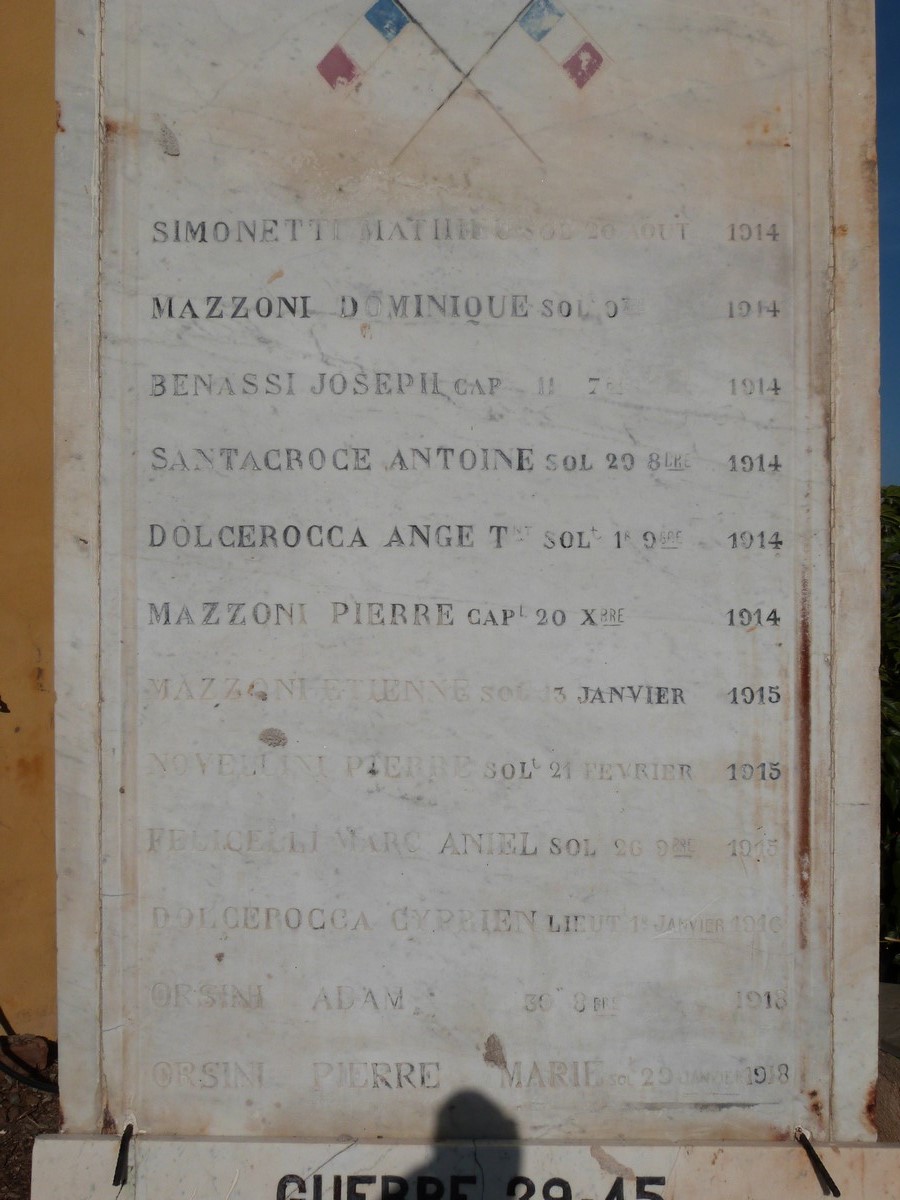 SIMONETTI MATHIEU SOL 20 AOUT 1914
MAZZONI DOMINIQUE SOLᵗ 1914
BENASSI JOSEPH CAP 11 7ᵇʳᵉ 1914
SANTACROCE ANTOINE SOL 29 8BRE 1914
DOLCEROCCA ANGE TNT SOLᵗ 1ᴿ 9BRE 1914
MAZZONI PIERRE CAPᵗ 20 XBRE 1914
MAZZONI ETIENNE SOL 13 JANVIER 1915
NOVELLINI PIERRE SOLᵗ 21 FEVRIER 1915
FELICELLI MARC ANIEL SOL 26 9BRE 1915
DOLCEROCCA CYPRIEN LIEUT 1ᴿ JANVIER 1916
ORSINI ADAM 30 8BRE 1918
ORSINI PIERRE MARIE SOL 29 JANVIER 1918
GUERRE 39-45